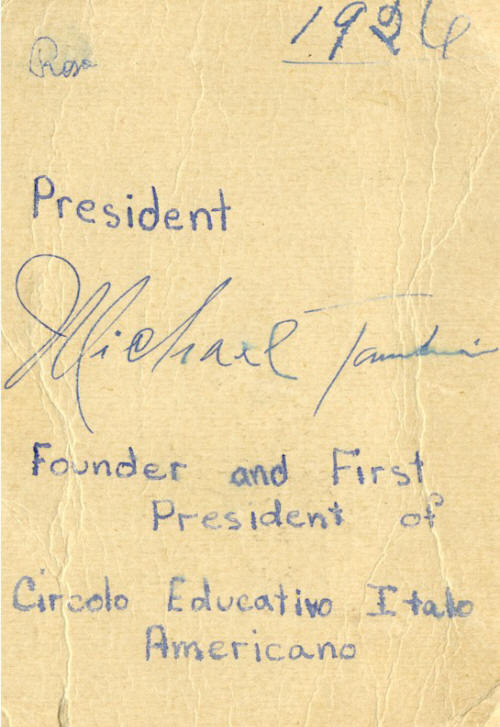 1926
Rosa
President
Michael
Founder and First
President of
Circolo Educativo Italo
Americano